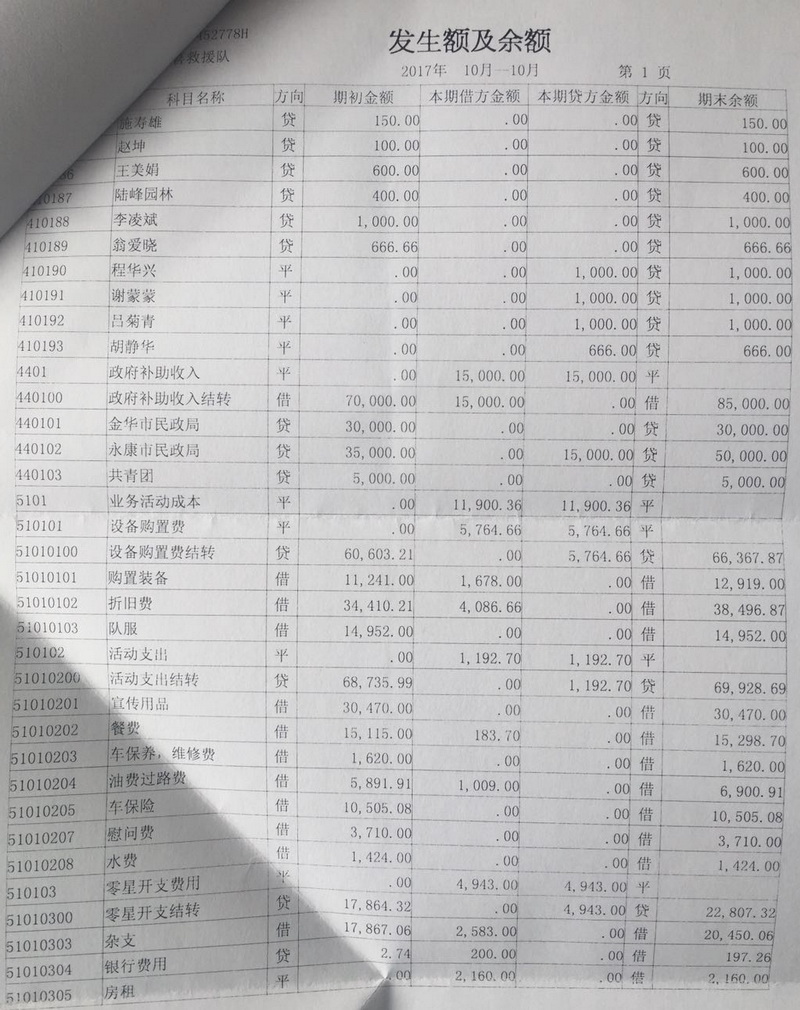 462778H
救援队
发生额及余额
2017年 10月—10月 第 1 页
科目名称 方向 期初金额 本期借方金额 本期贷方金额 方向 期末余额
施寿雄 贷 150.00 .00 .00 贷 150.00
赵坤 贷 100.00 .00 .00 贷 100.00
王美娟 贷 600.00 .00 .00 贷 600.00
410187 陆峰园林 贷 400.00 .00 .00 贷 400.00
410188 李凌斌 贷 1,000.00 .00 .00 贷 1,000.00
410189 翁爱晓 贷 666.66 .00 .00 贷 666.66
410190 程华兴 平 .00 .00 1,000.00 贷 1,000.00
410191 谢蒙蒙 平 .00 .00 1,000.00 贷 1,000.00
410192 吕菊青 平 .00 .00 1,000.00 贷 1,000.00
410193 胡静华 平 .00 .00 666.00 贷 666.00
4401 政府补助收入 平 .00 15,000.00 15,000.00 平
440100 政府补助收入结转 借 70,000.00 15,000.00 .00 借 85,000.00
440101 金华市民政局 贷 30,000.00 .00 .00 贷 30,000.00
440102 永康市民政局 贷 35,000.00 .00 15,000.00 贷 50,000.00
440103 共青团 贷 5,000.00 .00 .00 贷 5,000.00
5101 业务活动成本 平 .00 11,900.36 11,900.36 平
510101 设备购置费 平 .00 5,764.66 5,764.66 平
51010100 设备购置费结转 贷 60,603.21 .00 5,764.66 贷 66,367.87
51010101 购置装备 借 11,241.00 1,678.00 .00 借 12,919.00
51010102 折旧费 借 34,410.21 4,086.66 .00 借 38,496.87
51010103 队服 借 14,952.00 .00 .00 借 14,952.00
510102 活动支出 平 .00 1,192.70 1,192.70 平
51010200 活动支出结转 贷 68,735.99 .00 1,192.70 贷 69,928.69
51010201 宣传用品 借 30,470.00 .00 .00 借 30,470.00
51010202 餐费 借 15,115.00 183.70 .00 借 15,298.70
51010203 车保养，维修费 借 1,620.00 .00 .00 借 1,620.00
51010204 油费过路费 借 5,891.91 1,009.00 .00 借 6,900.91
51010205 车保险 借 10,505.08 .00 .00 借 10,505.08
51010207 慰问费 借 3,710.00 .00 .00 借 3,710.00
51010208 水费 借 1,424.00 .00 .00 借 1,424.00
510103 零星开支费用 平 .00 4,943.00 4,943.00 平
51010300 零星开支结转 贷 17,864.32 .00 4,943.00 贷 22,807.32
51010303 杂支 借 17,867.06 2,583.00 .00 借 20,450.06
51010304 银行费用 贷 2.74 200.00 .00 借 197.26
51010305 房租 平 .00 2,160.00 .00 借 2,160.00